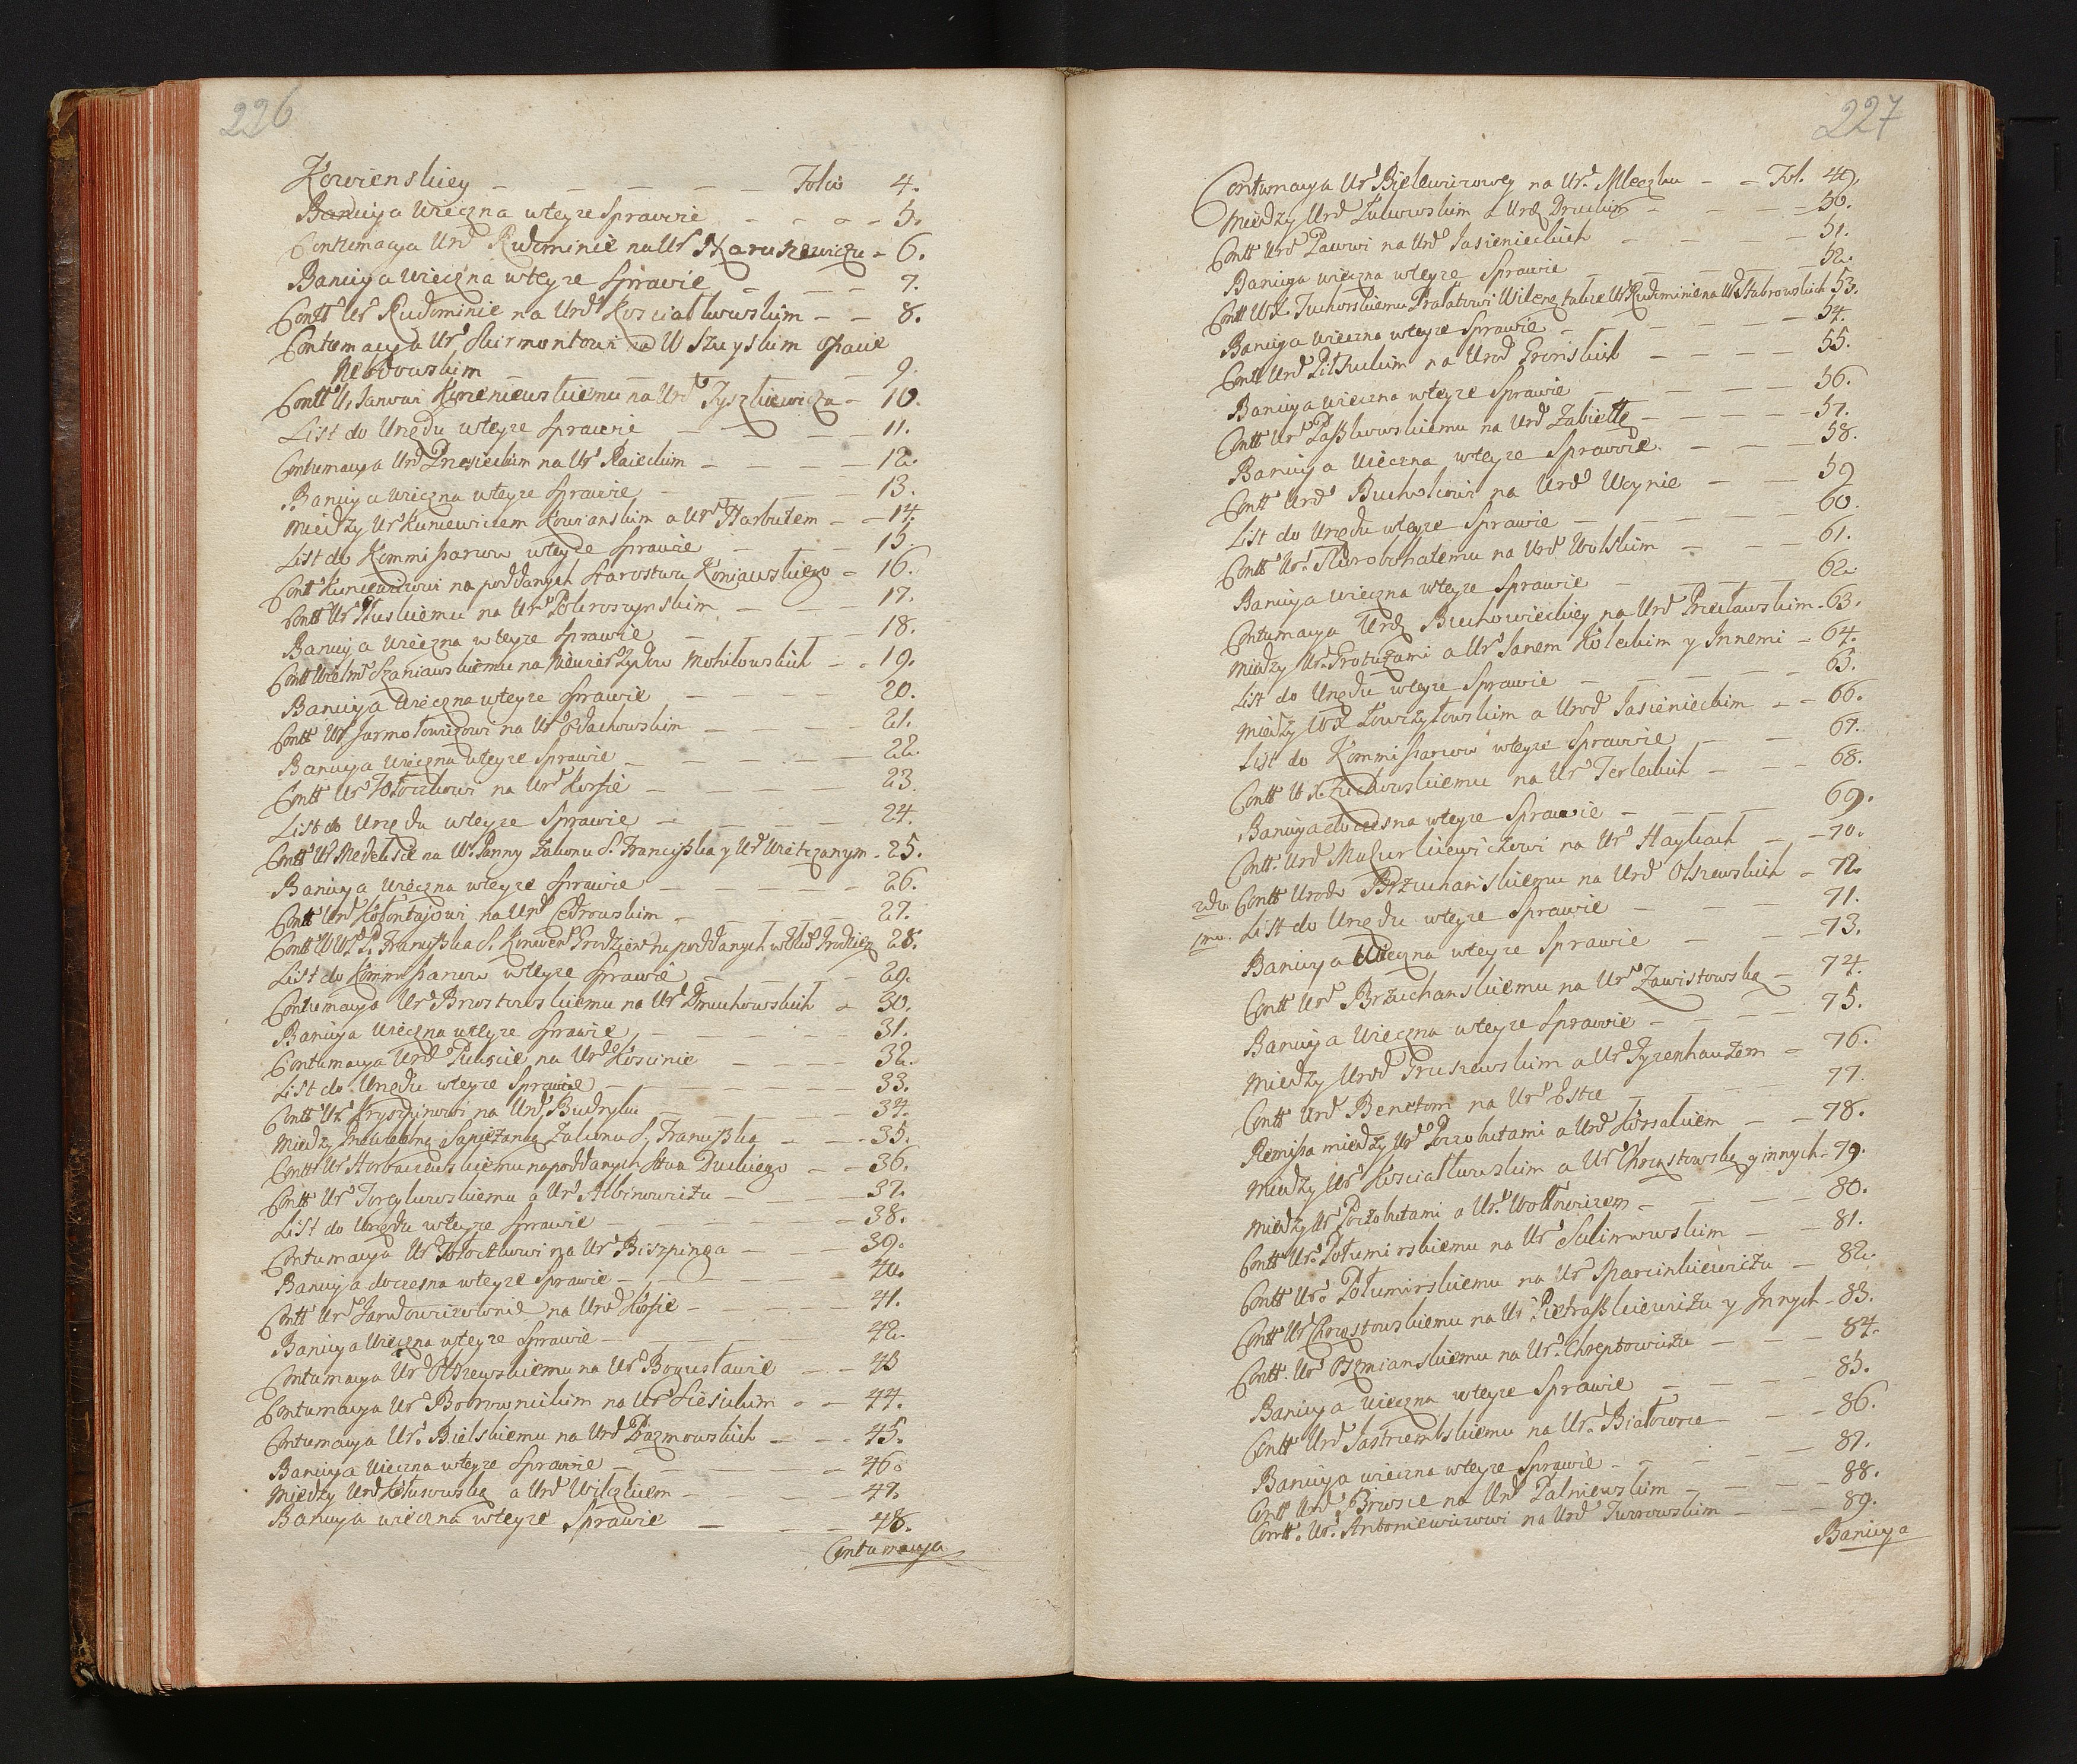 226
Kowienskiey — — — — — Folio 4.
Banicya wieczna wteyze Sprawie - - - - 5.
Contumacya Urd Rudominie na Ur Naruszewicza - 6.
Banicya wieczna wteyze Sprawie - - - 7.
Contt Ur Rudominie na Urd Kosciałkowskim - - 8.
Contumacya Ur Skirmontowi na W Szuyskim
9.
Contt Ur Janowi Korzeniewskiemu na Urd Tyszkiewicza - 10.
List do Urzędu wteyze Sprawie - - - 11.
Contumacya Urd Przesieckim na Ur Raieckim - - - 12.
Banicya wieczna wteyze Sprawie - - - 13.
Między Ur Kuniewiczem Kowienskim a Ur Narbutem - - 14.
List do Kommissarzow wteyze Sprawie - - 15.
Contt Kuniewiczowi na poddanych Starostwa Koniawskiego - 16.
Contt Ur na Ur - - - 17.
Banicya wieczna wteyze Sprawie - - - 18.
Contt Wielm Szaniawskiemu na Niewier Zydow Mohilowskich - - 19.
Banicya wieczna wteyze Sprawie - - - 20.
Contt Ur Jarmołowiczowi na Ur Odachowskim - - - 21.
Banicya wieczna wteyze Sprawie - - - 22.
Contt Ur Tołoczkowi na Ur Korsie - - - 23.
List do Urzędu wteyze Sprawie - - - 24.
Contt Ur Medekszie na W. Panny Zakonu S. Franciszka y Ur - 25.
Banicya wieczna wteyze Sprawie - - - 26.
Contt Urd Kołontajowi na Urd Cedrowskim - - - 27.
Contt na poddanych 28.
List do Kommissarzow wteyze Sprawie - - - 29.
Contumacya Ur Brzostowskiemu na Ur Dmuchowskich - 30.
Banicya wieczna wteyze Sprawie - - - 31.
Contumacya Urd na Urd Kosciuie - - - 32.
List do Urzędu wteyze Sprawie - - - 33.
Contt Ur Kryszpinowi na Urd Budryku - - - 34.
Między Przewielebną Sapieżanką Zakonu S. Franciszka - - 35.
Contt Ur Horbaczewskiemu na poddanych Stwa Duckiego - - 36.
Contt Ur a Ur Albinowiczu - - - 37.
List do Urzędu wteyze Sprawie - - - 38.
Contumacya Ur Tołoczkowi na Ur Biszpinga - - - 39.
Banicya doczesna wteyze Sprawie - - - 40.
Contt Urd na Urd Korsie - - - 41.
Banicya wieczna wteyze Sprawie - - - 42.
Contumacya Ur Olszewskiemu na Ur Bogusławie - - 43
Contumacya Ur Bobrownickim na Ur - - 44.
Contumacya Ur. Bielskiemu na Urd Prazmowskich - - - 45.
Banicya wieczna wteyze Sprawie - - - 46.
Między Urd a Urd Wilczkiem - - - 47.
Banicya wieczna wteyze Sprawie - - - 48.
Contumacya
227
Contumacya Ur Bielewiczowey na Ur. Mleczku - - Fol. 49.
Między Urd Zukowskim a Urd Druckim - - - 50.
Contt Urd na Urd Jasienieckich - - - 51.
Banicya wieczna wteyze Sprawie - - - 52.
Contt WX. Prałatowi Ur Rudominie na 53.
Banicya wieczna wteyze Sprawie - - - 54.
Contt Urd na Urod - - - 55.
Banicya wieczna wteyze Sprawie - - - 56.
Contt Ur Paszkowskiemu na Urd Zabiełłę - - - 57.
Banicya wieczna wteyze Sprawie - - - 58.
Contt Urd na Urd Woynie - - 59
List do Urzędu wteyze Sprawie - - - 60.
Contt Ur. Skorobohatemu na Urd Wolskim - - - 61.
Banicya wieczna wteyze Sprawie - - - 62.
Contumacya Urd Buchowieckiey na Urd Przecławskim - 63.
Między Ur. a Ur Janem y Innemi - 64.
List do Urzędu wteyze Sprawie - - - 65.
Między WX Zowczyłowskim a Urod Jasienieckim - - 66.
List do Kommissarzow wteyze Sprawie - - 67.
Contt WX. Zuchowskiemu na Ur Terleckich - - - 68.
Banicya doczesna wteyze Sprawie - - - 69.
Contt. Urd na Ur Haykach - - 70.
2do. Contt Urodz Brzuchanskiemu na Urd Olszewskich - 72.
1mo. List do Urzędu wteyze Sprawie - - - 71.
Banicya Wieczna wteyze Sprawie - - - 73.
Contt Urd Brzuchanskiemu na Ur Zawistowską - 74.
Banicya Wieczna wteyze Sprawie - - - 75.
Między Urod Pruszewskim a Ur Tyzenhauzem - 76.
Contt Urd Benetom na Ur - - - 77.
Remissa między Ur Poczobutami a Urd Korsakiem - - 78.
Między Ur Kosciałkowskim a Ur Chrząstowską y innych - 79.
Między Ur Poczobutami a Ur. Wołłowiczem - - - 80.
Contt Ur. Połumirskiemu na Ur Sulimowskim - - - 81.
Contt Ur. Połumirskiemu na Ur Marcinkiewiczu - 82.
Contt Ur Chrząstowskiemu na Ur Pietraszkiewiczu y Innych - 83.
Contt. Ur Oszmianskiemu na Ur. Chreptowiczu - - - 84.
Banicya wieczna wteyze Sprawie - - - 85.
Contt Urd Jastrzembskiemu na Ur. Białłozorze - - - 86.
Banicya wieczna wteyze Sprawie - - - 87.
Contt Urd na Urd Palniewskim - - - 88.
Contt. Ur. Antoniewiczowi na Urd Turrowskim - - - 89.
Banicya